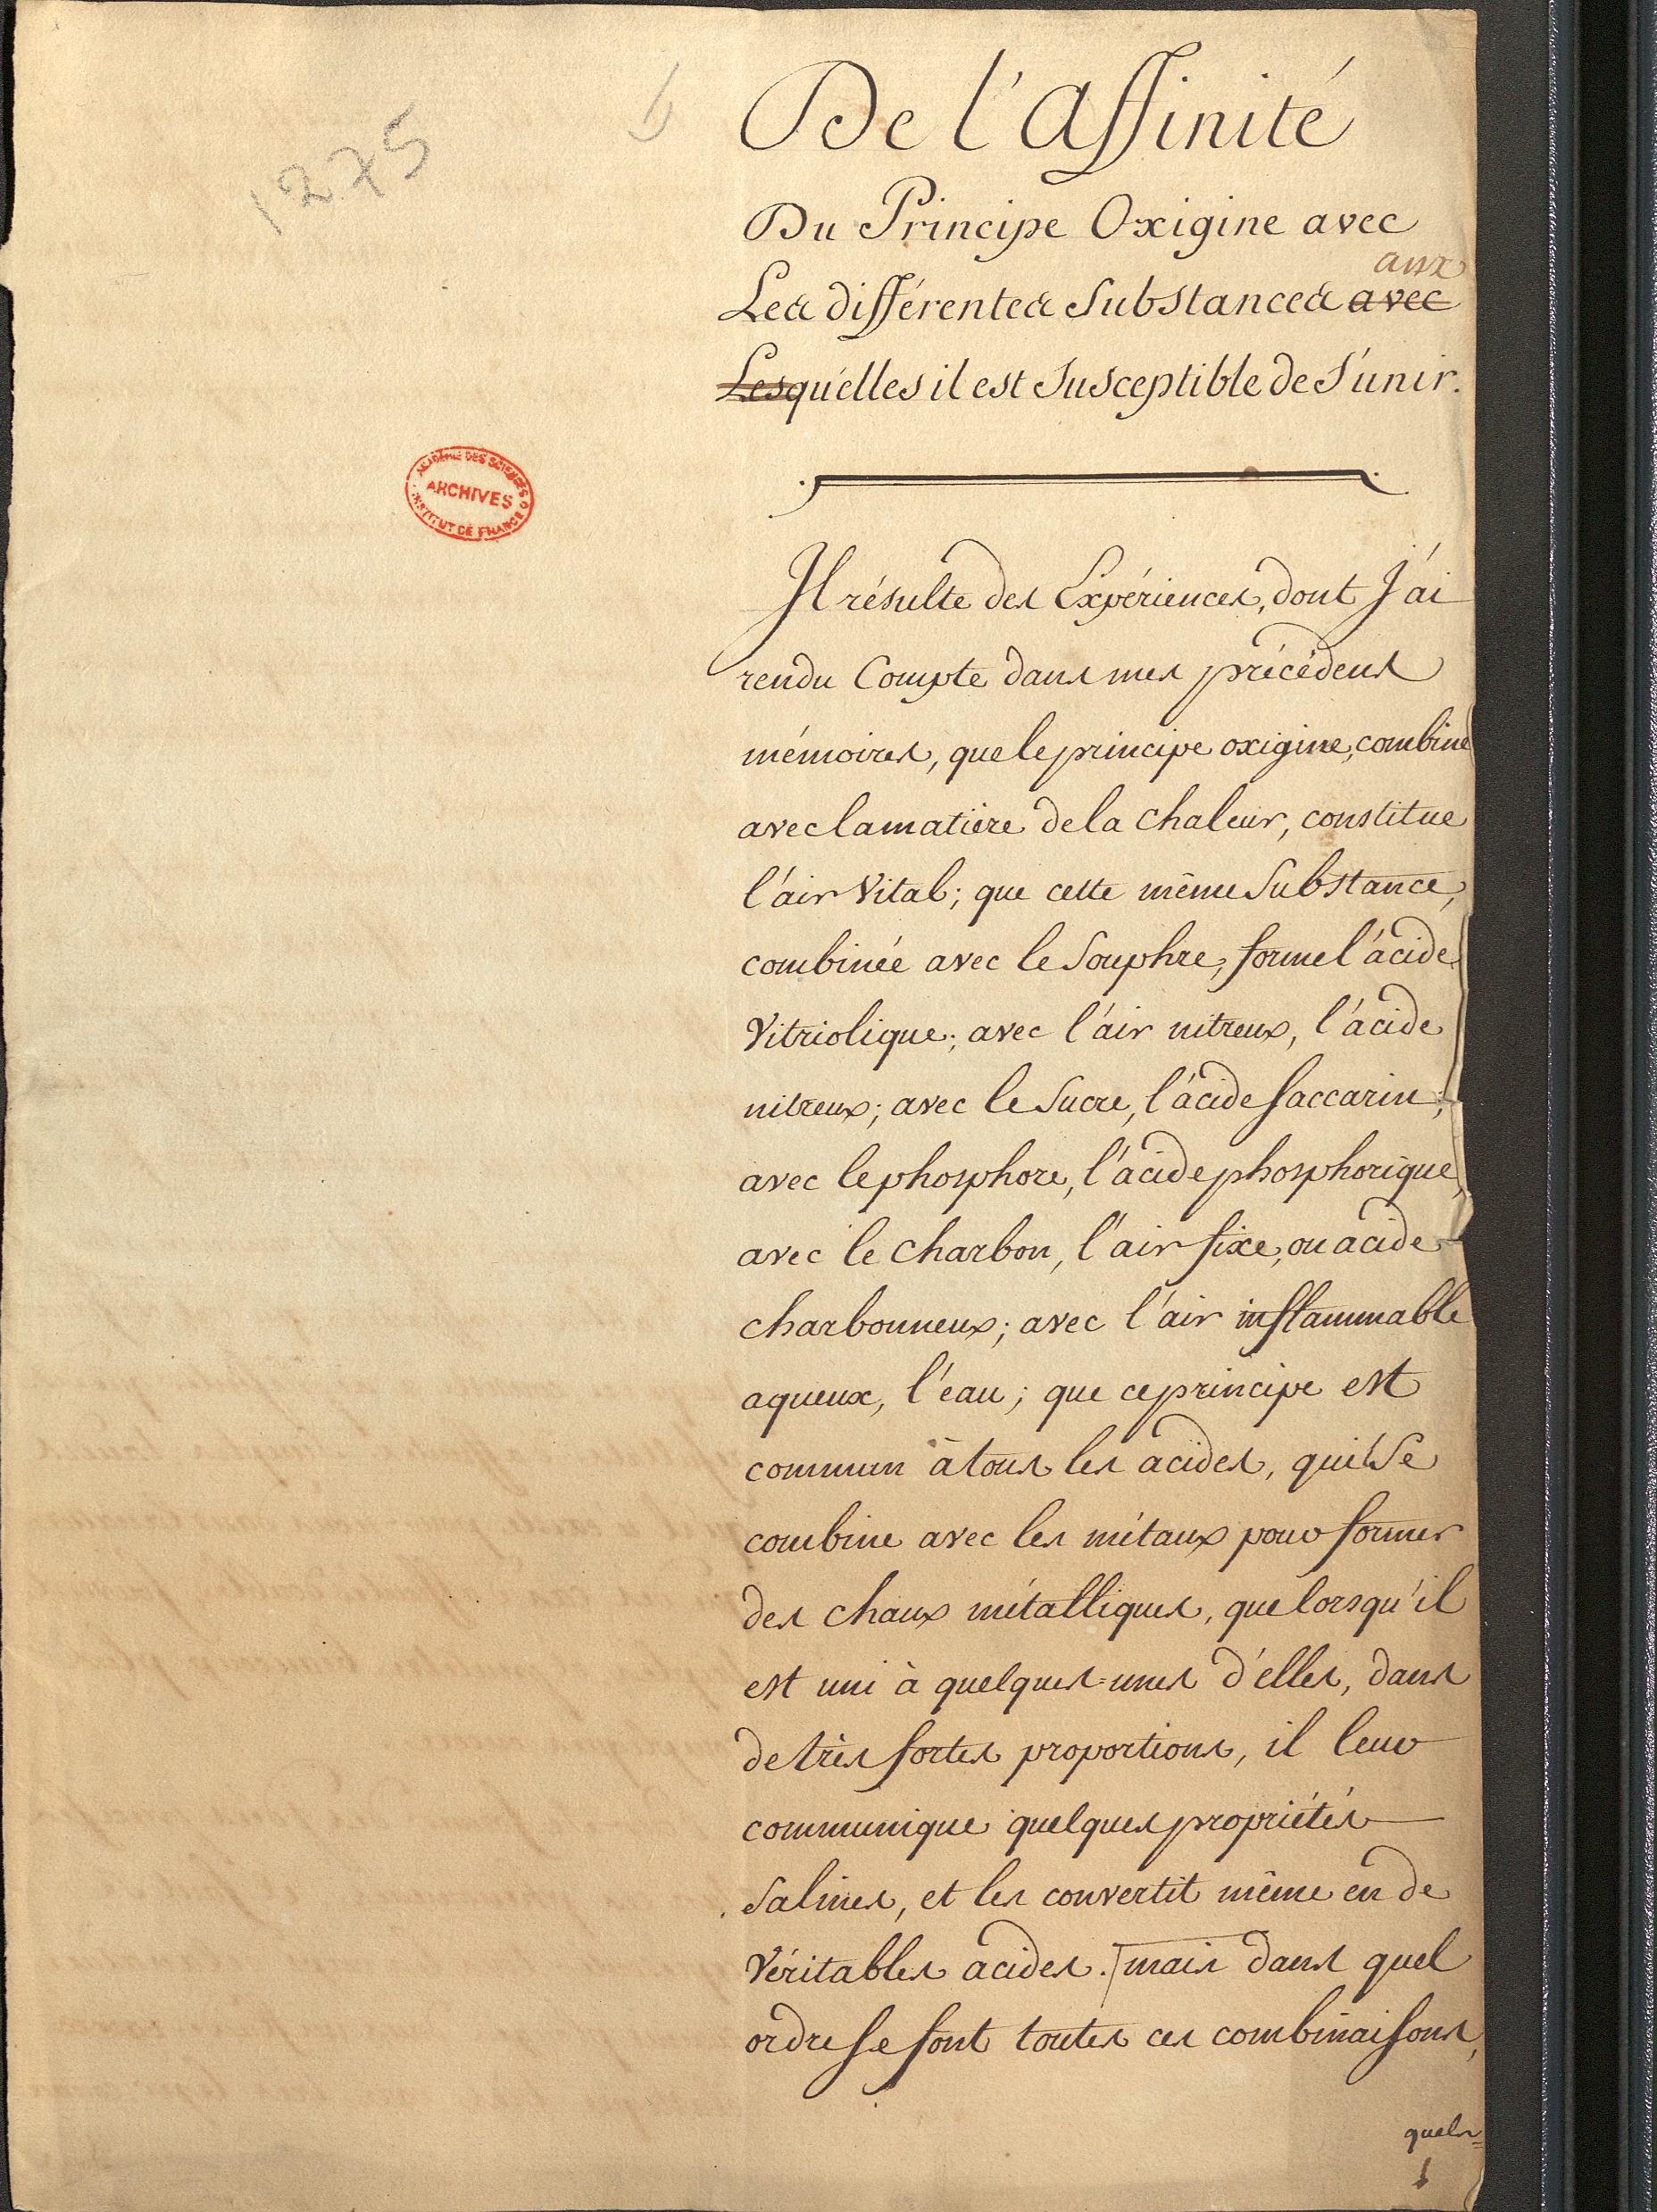 1275
De l'Affinité
Du Principe Oxigine avec
aux
Les différentes Substances avec
Lesquelles il est Susceptible de S'unir.
ACADÉMIE DES SCIENCES
ARCHIVES
INSTITUT DE FRANCE
Il résulte des Expériences, dont J'ai
rendu Compte dans mes précédens
mémoires, que le principe oxigine, combiné
avec la matière de la chaleur, constitue
l'air Vital; que cette même Substance,
combinée avec le Souphre, forme l'acide
Vitriolique; avec l'air nitreux, l'acide
nitreux; avec le Sucre, l'acide saccarin;
avec le phosphore, l'acide phosphorique,
avec le charbon, l'air fixe, ou acide
charbonneux; avec l'air inflammable
aqueux, l'eau; que ce principe est
commun à tous les acides, qu'il Se
combine avec les métaux pour former
des chaux métalliques, que lorsqu'il
est uni à quelques-unes d'elles, dans
de très fortes proportions, il leur
communique quelques propriétés
Salines, et les convertit même en de
Véritables acides. mais dans quel
ordre se font toutes ces combinaisons,
quels